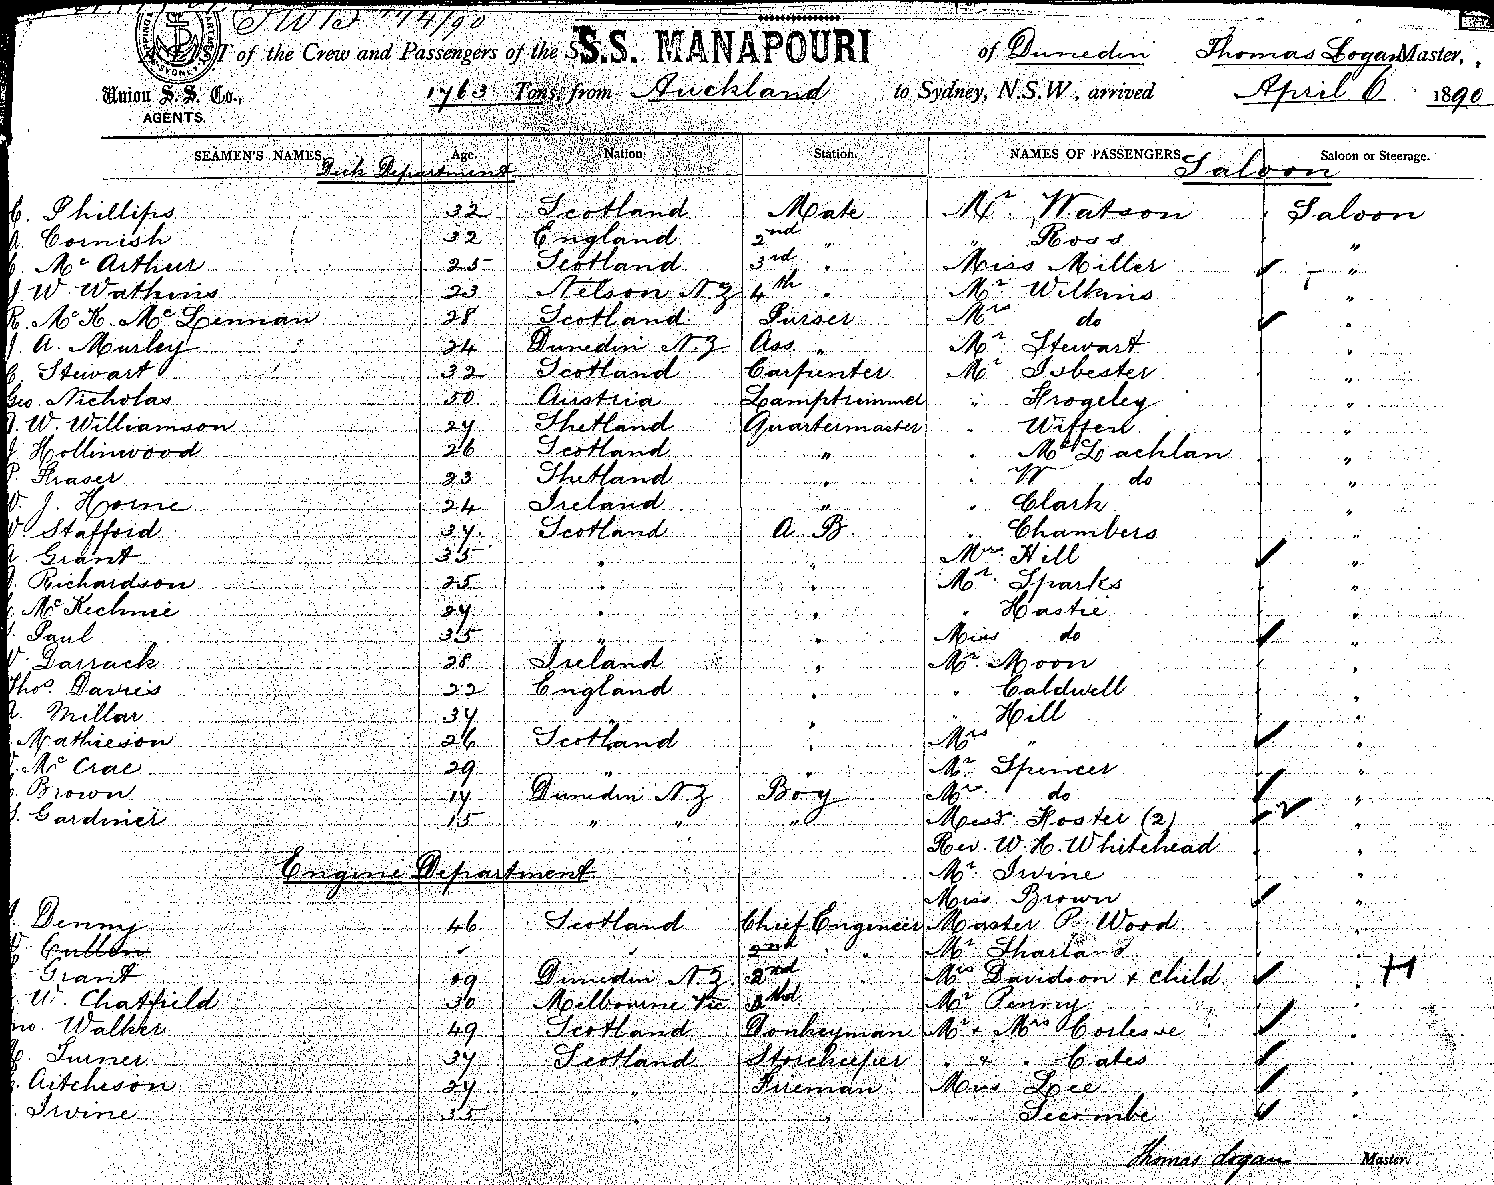 LIST of the Crew and Passengers of the S.S. MANAPOURI of Dunedin Thomas Logan Master,
Union S. S. Co., AGENTS. 1763 Tons, from Auckland to Sydney, N.S.W., arrived April 6 1890
SEAMEN'S NAMES. Age. Nation. Station. NAMES OF PASSENGERS. Saloon or Steerage.
Deck Department Saloon
Phillips 32 Scotland Mate Mr. Watson Saloon
Cornish 32 England 2nd " " Ross "
Mc Arthur 25 Scotland 3rd " Miss Miller "
J W Watkins 23 Nelson N Z 4th " Mr Wilkins "
R. McK. Mc Lennan 28 Scotland Purser Mrs do "
J A. Murley 24 Dunedin N. Z Ass. " Mr Stewart "
Stewart 32 Scotland Carpenter Mr Isbester "
Geo Nicholas 50 Austria Lamptrimmer " Frogeley "
W. Williamson 27 Shetland Quartermaster " Wiffen "
J Hollinwood 26 Scotland " " McLachlan "
P. Fraser 23 Shetland " " W do "
J. Horne 24 Ireland " " Clark "
Stafford 37 Scotland A B. " Chambers "
Grant 35 " " Mrs Hill "
Richardson 25 " " Mr. Sparks "
McKechnie 27 " " " Hastie "
Paul 35 " " Miss do "
Darrack 28 Ireland " Mr. Moon "
Thos. Davies 22 England " " Caldwell "
Millar 37 " " " Hill "
Mathieson 26 Scotland " Mrs " "
Mc Crae 29 " " Mr Spencer "
Brown 17 Dunedin N Z Boy Mrs do "
Gardiner 15 " " " Foster (2) "
Rev. W. H. Whitehead "
Engine Department Mr. Irvine "
Miss Brown "
Denny 46 Scotland Chief Engineer Master P. Wood "
Cullen " " 2nd " Mr Sharland "
Grant Dunedin N Z. 2nd " Mrs Davidson + child "
W. Chatfield 30 Melbourne Vic Mr Penny "
Walker 49 Scotland Donkeyman Mr + Mrs "
Turner 37 Scotland Storekeeper " + " Cates "
Aitcheson 27 " Fireman Miss Lee "
Irvine 35 " " " Secombe "
Thomas Logan Master.